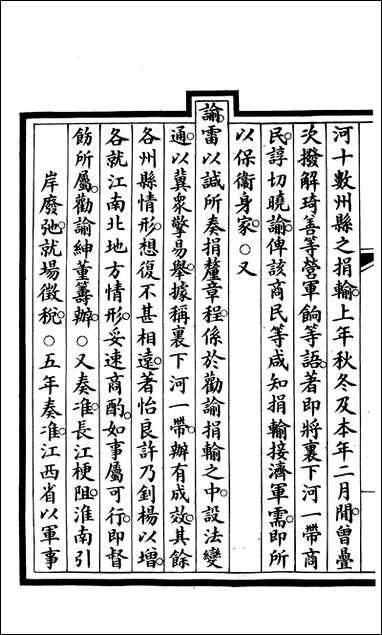 河十數州縣之捐輸上年秋冬及本年二月間曾疊
次撥解琦善等營軍餉等語著即將裏下河一帶商
民諄切曉諭俾該商民等咸知捐輸接濟軍需即所
以保衛身家○又
諭雷以諴所奏捐釐章程係於勸諭捐輸之中設法變
通以冀眾擎易舉據稱裏下河一帶辦有成效其餘
各州縣情形想復不甚相遠著怡良許乃釗楊以增
各就江南北地方情形妥速商酌如事屬可行即督
飭所屬勸諭紳董籌辦○又奏淮長江梗阻淮南引
岸廢弛就場徵稅○五年奏淮江西省以軍事